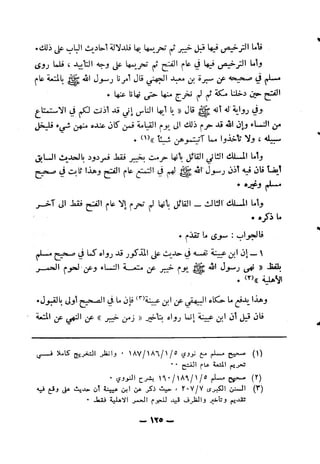 فأما الترخيص فيها قبل خيبر ثم تحريمها بها فلدلالة أحاديث الباب على ذلك.
وأما الترخيص فيها في عام الفتح ثم تحريمها على وجه التأبيد ، فلما روى
مسلم في صحيحه عن سبرة بن معبد الجهني قال أمرنا رسول الله ﷺ بالمتعة عام
الفتح حين دخلنا مكة ثم لم نخرج منها حتى نهانا عنها .
وفي رواية له أنه ﷺ قال « يا أيها الناس إني قد أذنت لكم في الاستمتاع
من النساء وإن الله قد حرم ذلك الى يوم القيامة فمن كان عنده منهن شيء فليخل
سبيله ، ولا تأخذوا مما آتيتموهن شيئاً »(١) .
وأما المسلك الثاني القائل بأنها حرمت بخيبر فقط فمردود بالحديث السابق
أيضاً فإن فيه أذن رسول الله ﷺ لهم في التمتع عام الفتح وهذا ثابت في صحيح
مسلم وغيره .
وأما المسلك الثالث ــ القائل بأنها لم تحرم إلا عام الفتح فقط الى آخر
ما ذكره .
فالجواب : سوى ما تقدم .
١ ــ إن ابن عيينة نفسه في حديث علي المذكور قد رواه كما في صحيح مسلم
بلفظ « نهى رسول الله ﷺ يوم خيبر عن متعة النساء وعن لحوم الحمر
الأهلية »(٢) .
وهذا يدفع ما حكاه البيهقي عن ابن عيينة(٣) فإن ما في الصحيح أولى بالقبول.
فإن قيل أن ابن عيينة إنما رواه بتأخير « زمن خيبر » عن النهي عن المتعة
(١) صحيح مسلم مع نووي ١٨٧/١٨٦/١/٥ . وانظر التخريج كاملا في
تحريم المتعة عام الفتح . .
(٢) صحيح مسلم ١٩٠/١٨٩/١/٥ بشرح النووي .
(٣) السنن الكبرى ٢٠٧/٧ ، حيث ذكر عن ابن عيينة أن حديث علي وقع فيه
تقديم وتأخير والظرف قيد للحوم الحمر الاهلية فقط .
ــ ١٢٥ ــ